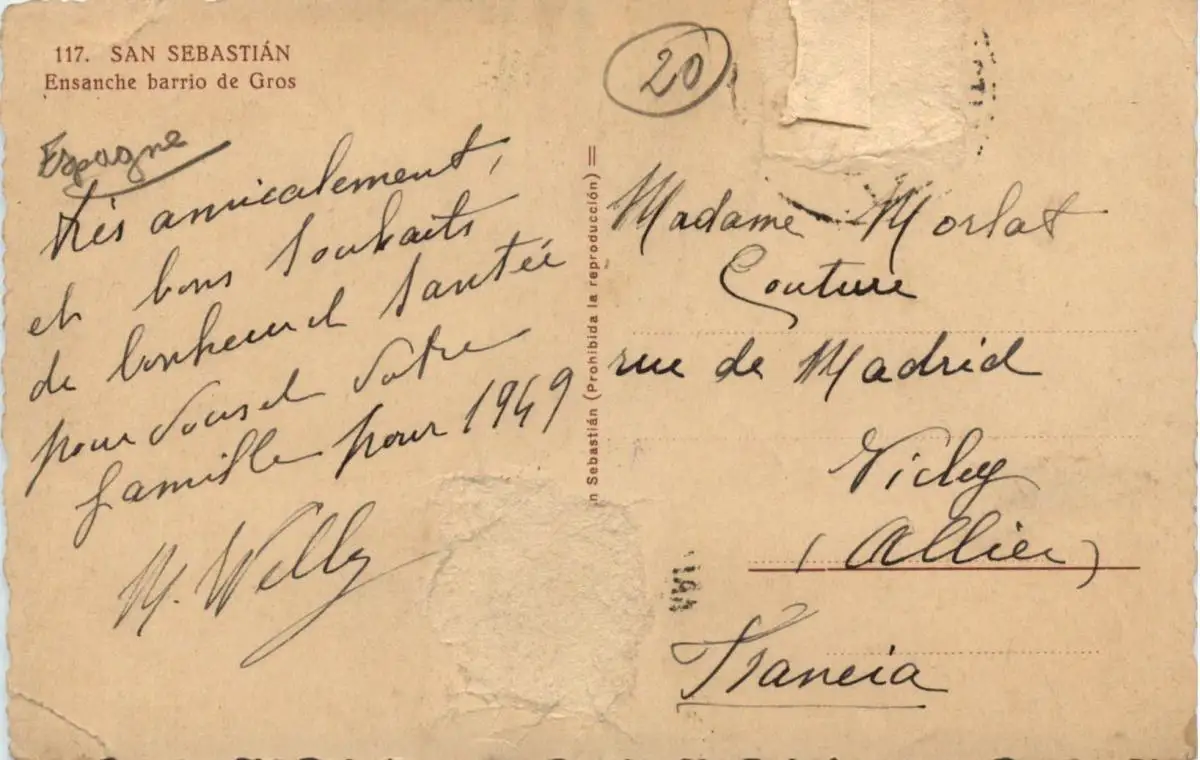 117. SAN SEBASTIÁN
Ensanche barrio de Gros
Espagne
très amicalement,
et bons souhaits
de bonheur et santée
pour vous et votre
famille pour 1949
M. Welly
n Sebastián (Prohibida la reproducción)
20
Madame Morlat
Couture
rue de Madrid
Vichy
(Allier)
Francia